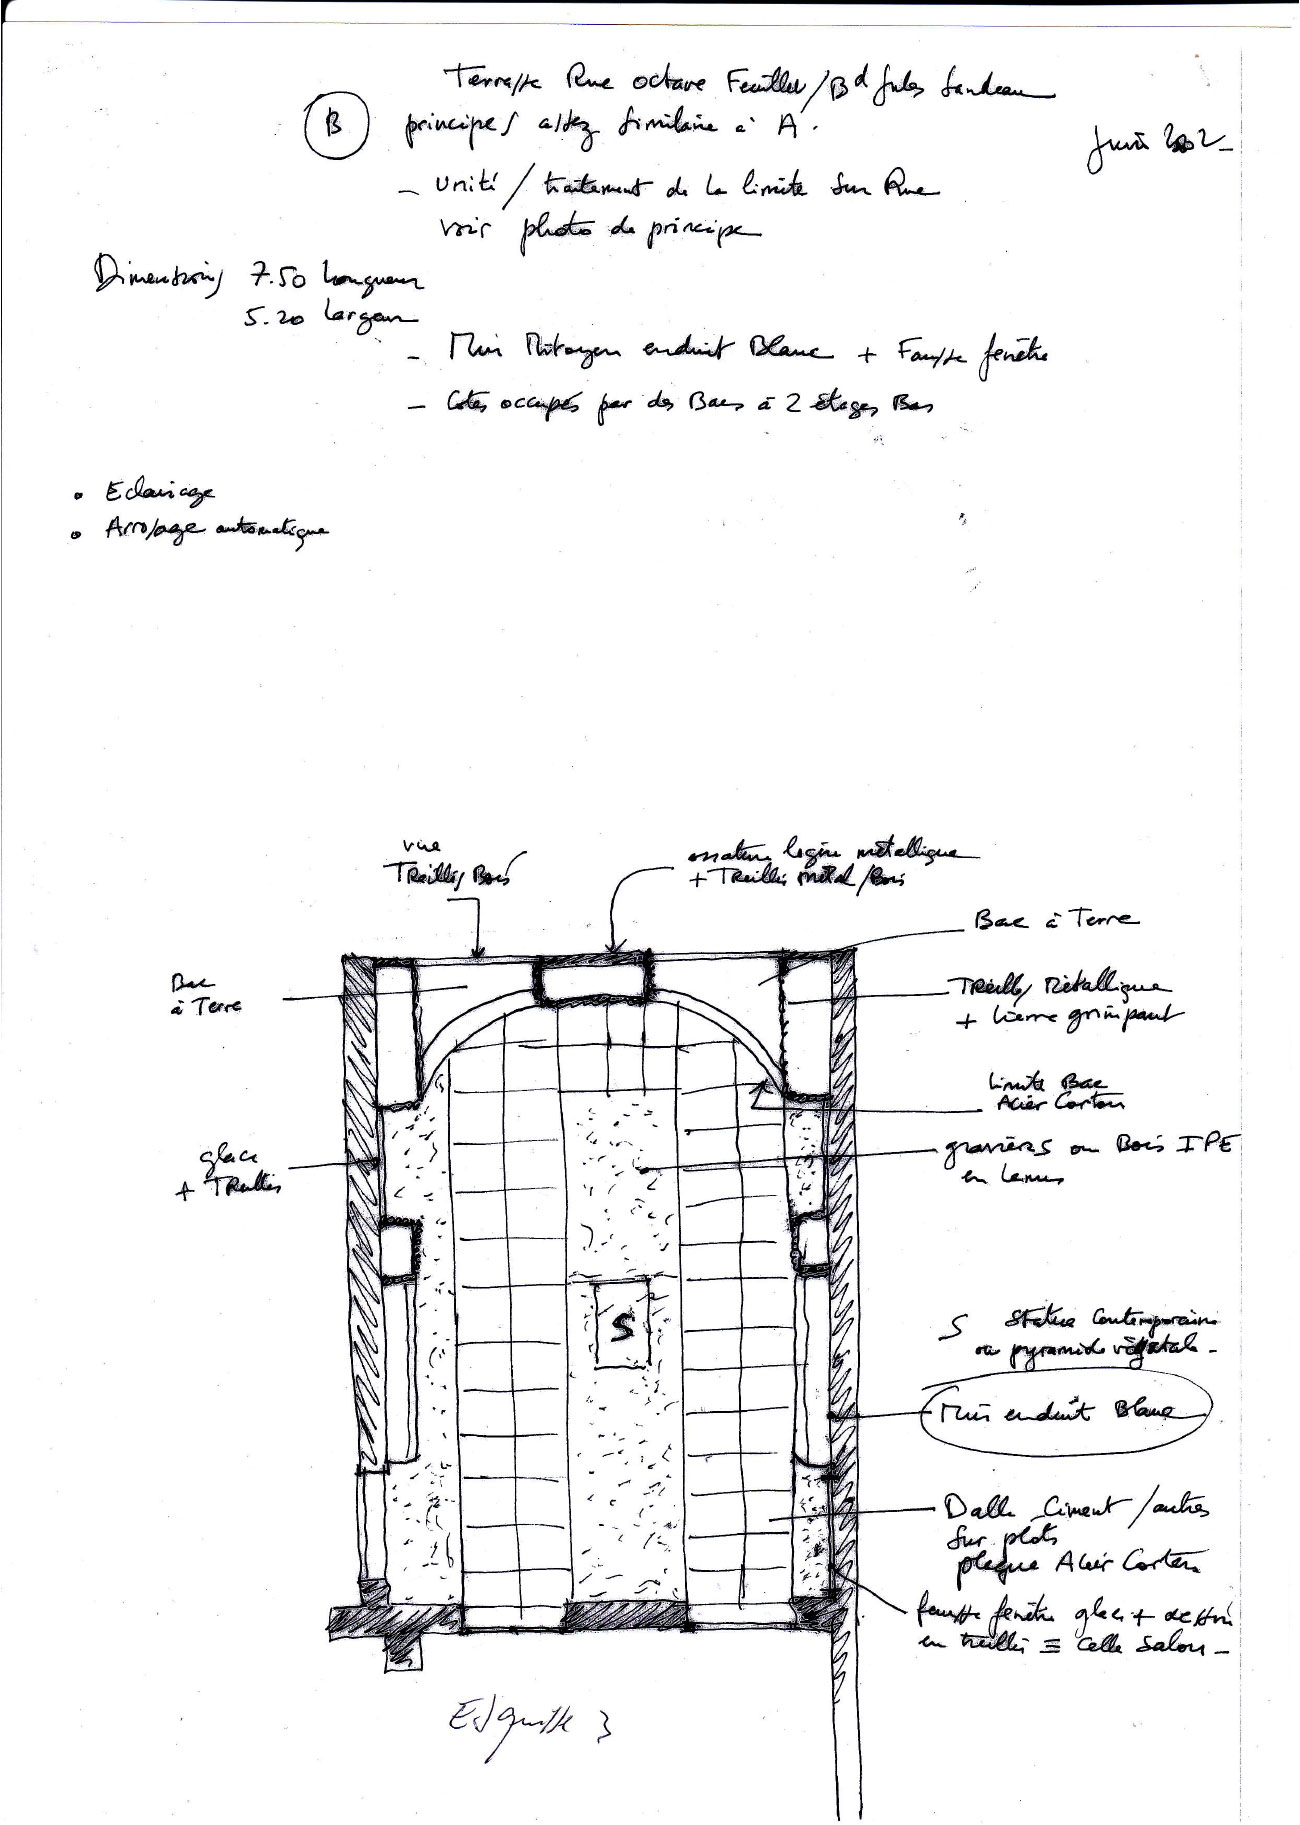 Terrasse Rue octave Feuillet / Bd Jules Sandeau
B
principes assez similaire à A.
Juin 2002
- Unité / traitement de la limite sur Rue
voir photo de principe
Dimensions 7.50 longueur
5.20 largeur
- Mur Mitoyen enduit Blanc + Fausse fenêtre
- Cotés occupés par des Bacs à 2 étages Bas
• Eclairage
• Arrosage automatique
vue
Treillis Bois
ossature légère métallique
+ Treillis métal / Bois
Bac à Terre
Bac
à Terre
Treillis Métallique
+ lierre grimpant
limite Bac
Acier Corten
glace
+ Treillis
graviers ou Bois IPE
en lames
S
S Statue Contemporaine
ou pyramide végétale -
Mur enduit Blanc
Dalle Ciment / autres
sur plots
plaque Acier Corten
fausse fenêtre glace + dessin
en treillis ≡ celle Salon -
Esquisse 3